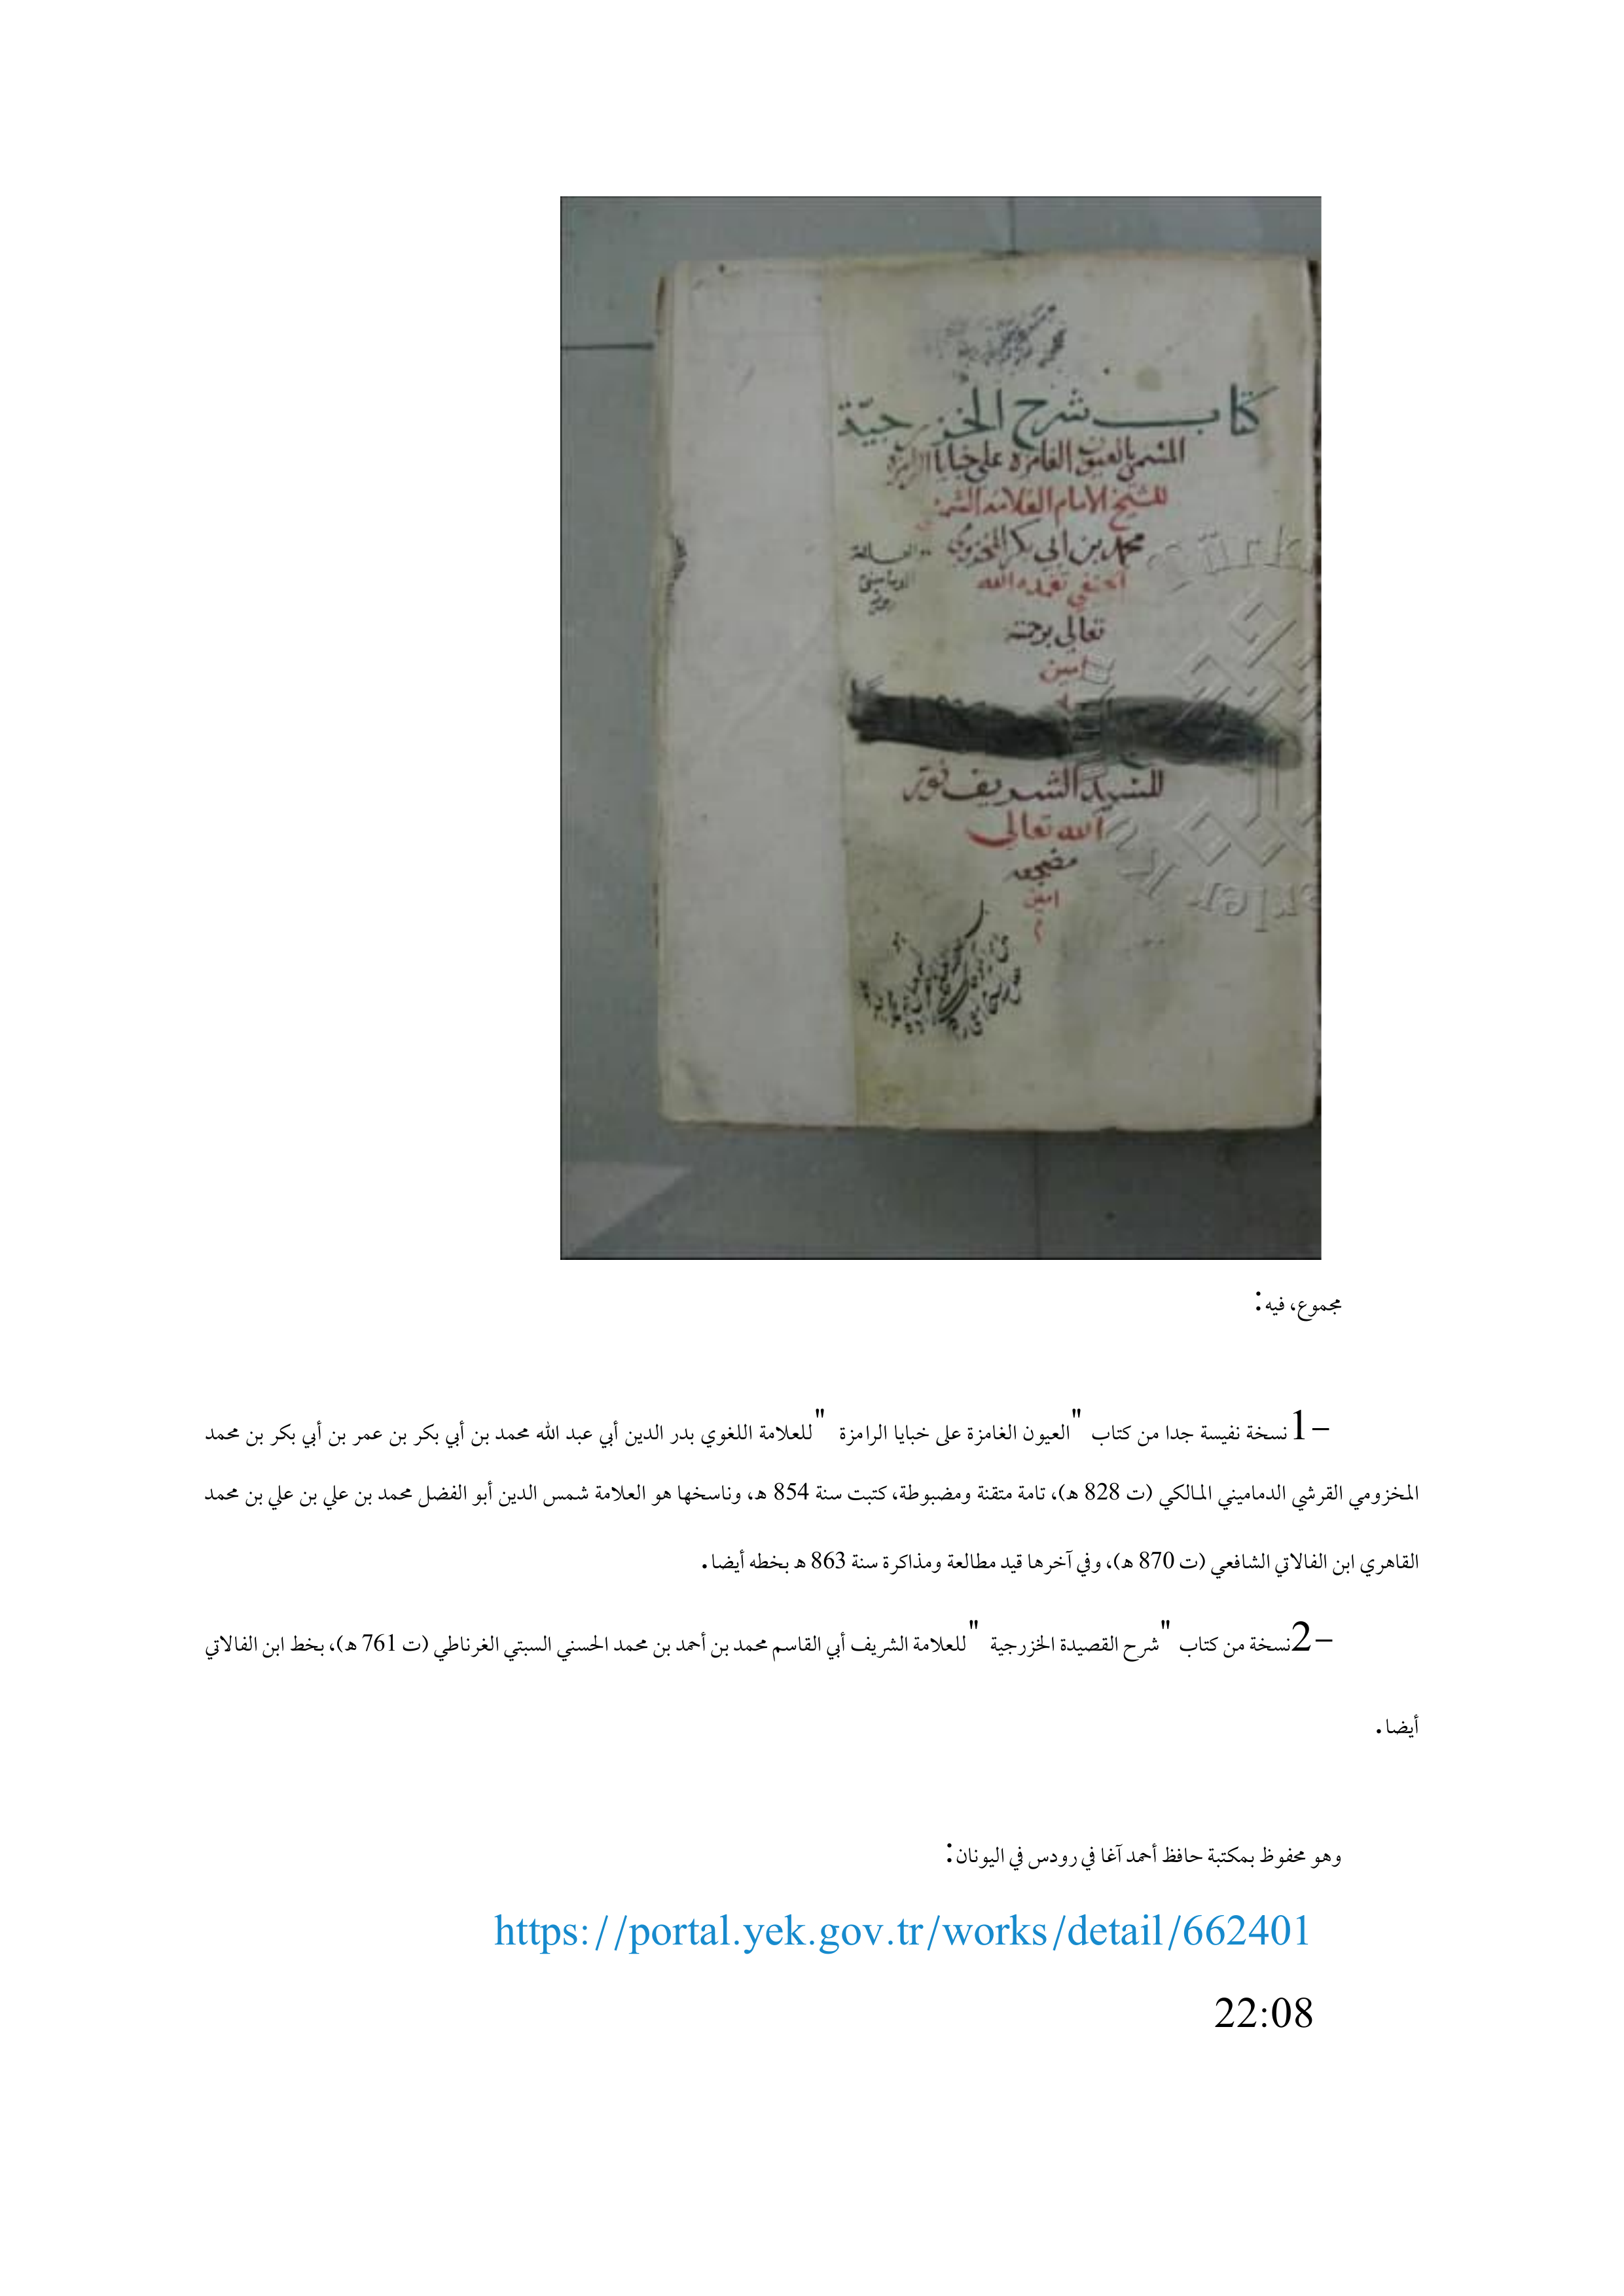 كتاب شرح الخزرجية
المسمى بالعيون الغامزة على خبايا الرامزة
للشيخ الامام العلامة
محمد بن ابي بكر المخزومي
الحنفي تغمده الله
تعالى برحمته
امين
للسيد الشريف نور
الله تعالى
مضجعه
امين
مجموع، فيه:
1- نسخة نفيسة جدا من كتاب "العيون الغامزة على خبايا الرامزة" للعلامة اللغوي بدر الدين أبي عبد الله محمد بن أبي بكر بن عمر بن أبي بكر بن محمد
المخزومي القرشي الدماميني المالكي (ت 828 ه)، تامة متقنة ومضبوطة، كتبت سنة 854 ه، وناسخها هو العلامة شمس الدين أبو الفضل محمد بن علي بن علي بن محمد
القاهري ابن الفالاتي الشافعي (ت 870 ه)، وفي آخرها قيد مطالعة ومذاكرة سنة 863 ه بخطه أيضا.
2- نسخة من كتاب "شرح القصيدة الخزرجية" للعلامة الشريف أبي القاسم محمد بن أحمد بن محمد الحسني السبتي الغرناطي (ت 761 ه)، بخط ابن الفالاتي
أيضا.
وهو محفوظ بمكتبة حافظ أحمد آغا في رودس في اليونان:
https://portal.yek.gov.tr/works/detail/662401
22:08